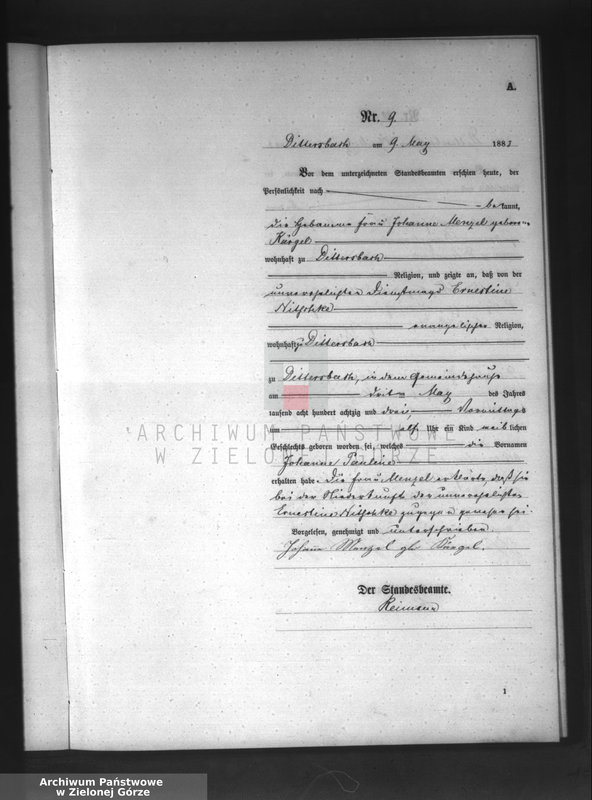 A.
Nr. 9.
Dittersbach am 9 May 1883
Vor dem unterzeichneten Standesbeamten erschien heute, der
Persönlichkeit nach
bekannt,
die Hebamme Frau Johanne Menzel geborene
Kürgel
wohnhaft zu Dittersbach
Religion, und zeigte an, daß von der
unverehelichten Dienstmagd Ernestine
Nitschke
evangelischer Religion,
wohnhaft zu Dittersbach
zu Dittersbach, in dem Gemeindehause
am dritten May des Jahres
tausend acht hundert achtzig und drei, Vormittags
um elf Uhr ein Kind weiblichen
Geschlechts geboren worden sei, welches die Vornamen
Johanne Pauline
erhalten habe. Die Frau Menzel erklärte, daß sie
bei der Niederkunft der unverehelichten
Ernestine Nitschke zugegen gewesen sei.
Vorgelesen, genehmigt und unterschrieben
Johane Menzel geb Kürgel.
Der Standesbeamte.
Reimann
1
ARCHIWUM PAŃSTWOWE
W ZIELONEJ GÓRZE
Archiwum Państwowe
w Zielonej Górze